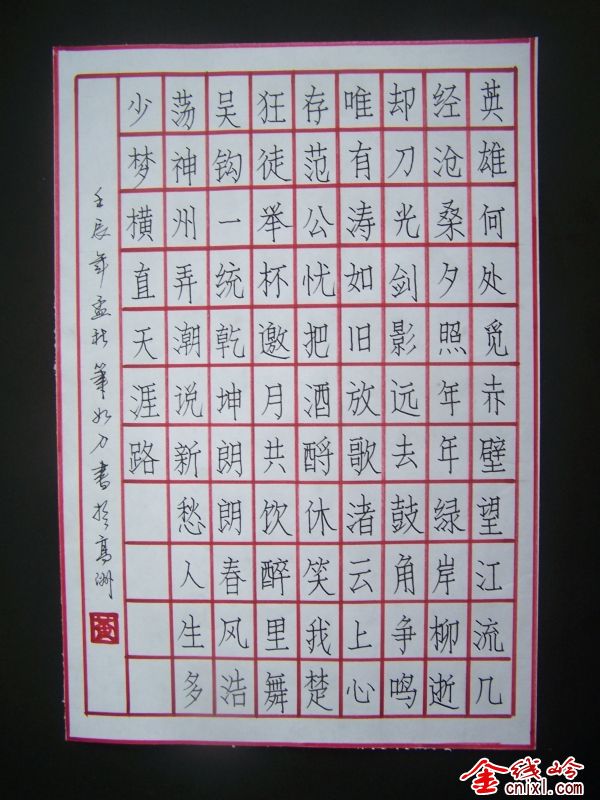 英雄何处觅赤壁望江流几
经沧桑夕照年年绿岸柳逝
却刀光剑影远去鼓角争鸣
唯有涛如旧放歌渚云上心
存范公忧把酒酹休笑我楚
狂徒举杯邀月共饮醉里舞
吴钩一统乾坤朗朗春风浩
荡神州弄潮说新愁人生多
少梦横直天涯路
壬辰年孟秋筆如刀書於高洲
金线岭
cnixl.com